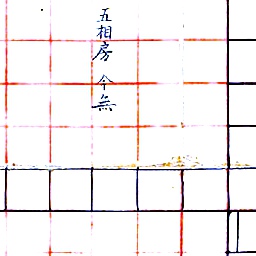 五相房 今無